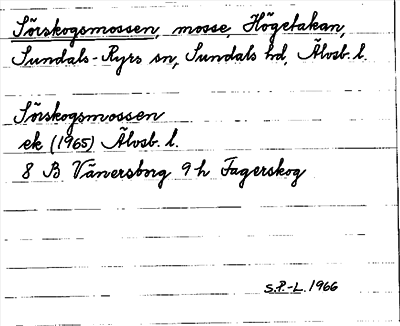 Sörskogsmossen, mosse, Högetakan,
Sundals-Ryrs sn, Sundals hd, Älvsb. l.
Sörskogsmossen
ek (1965) Älvsb. l.
8 B Vänersborg 9 h Fagerskog
S.P.-L. 1966